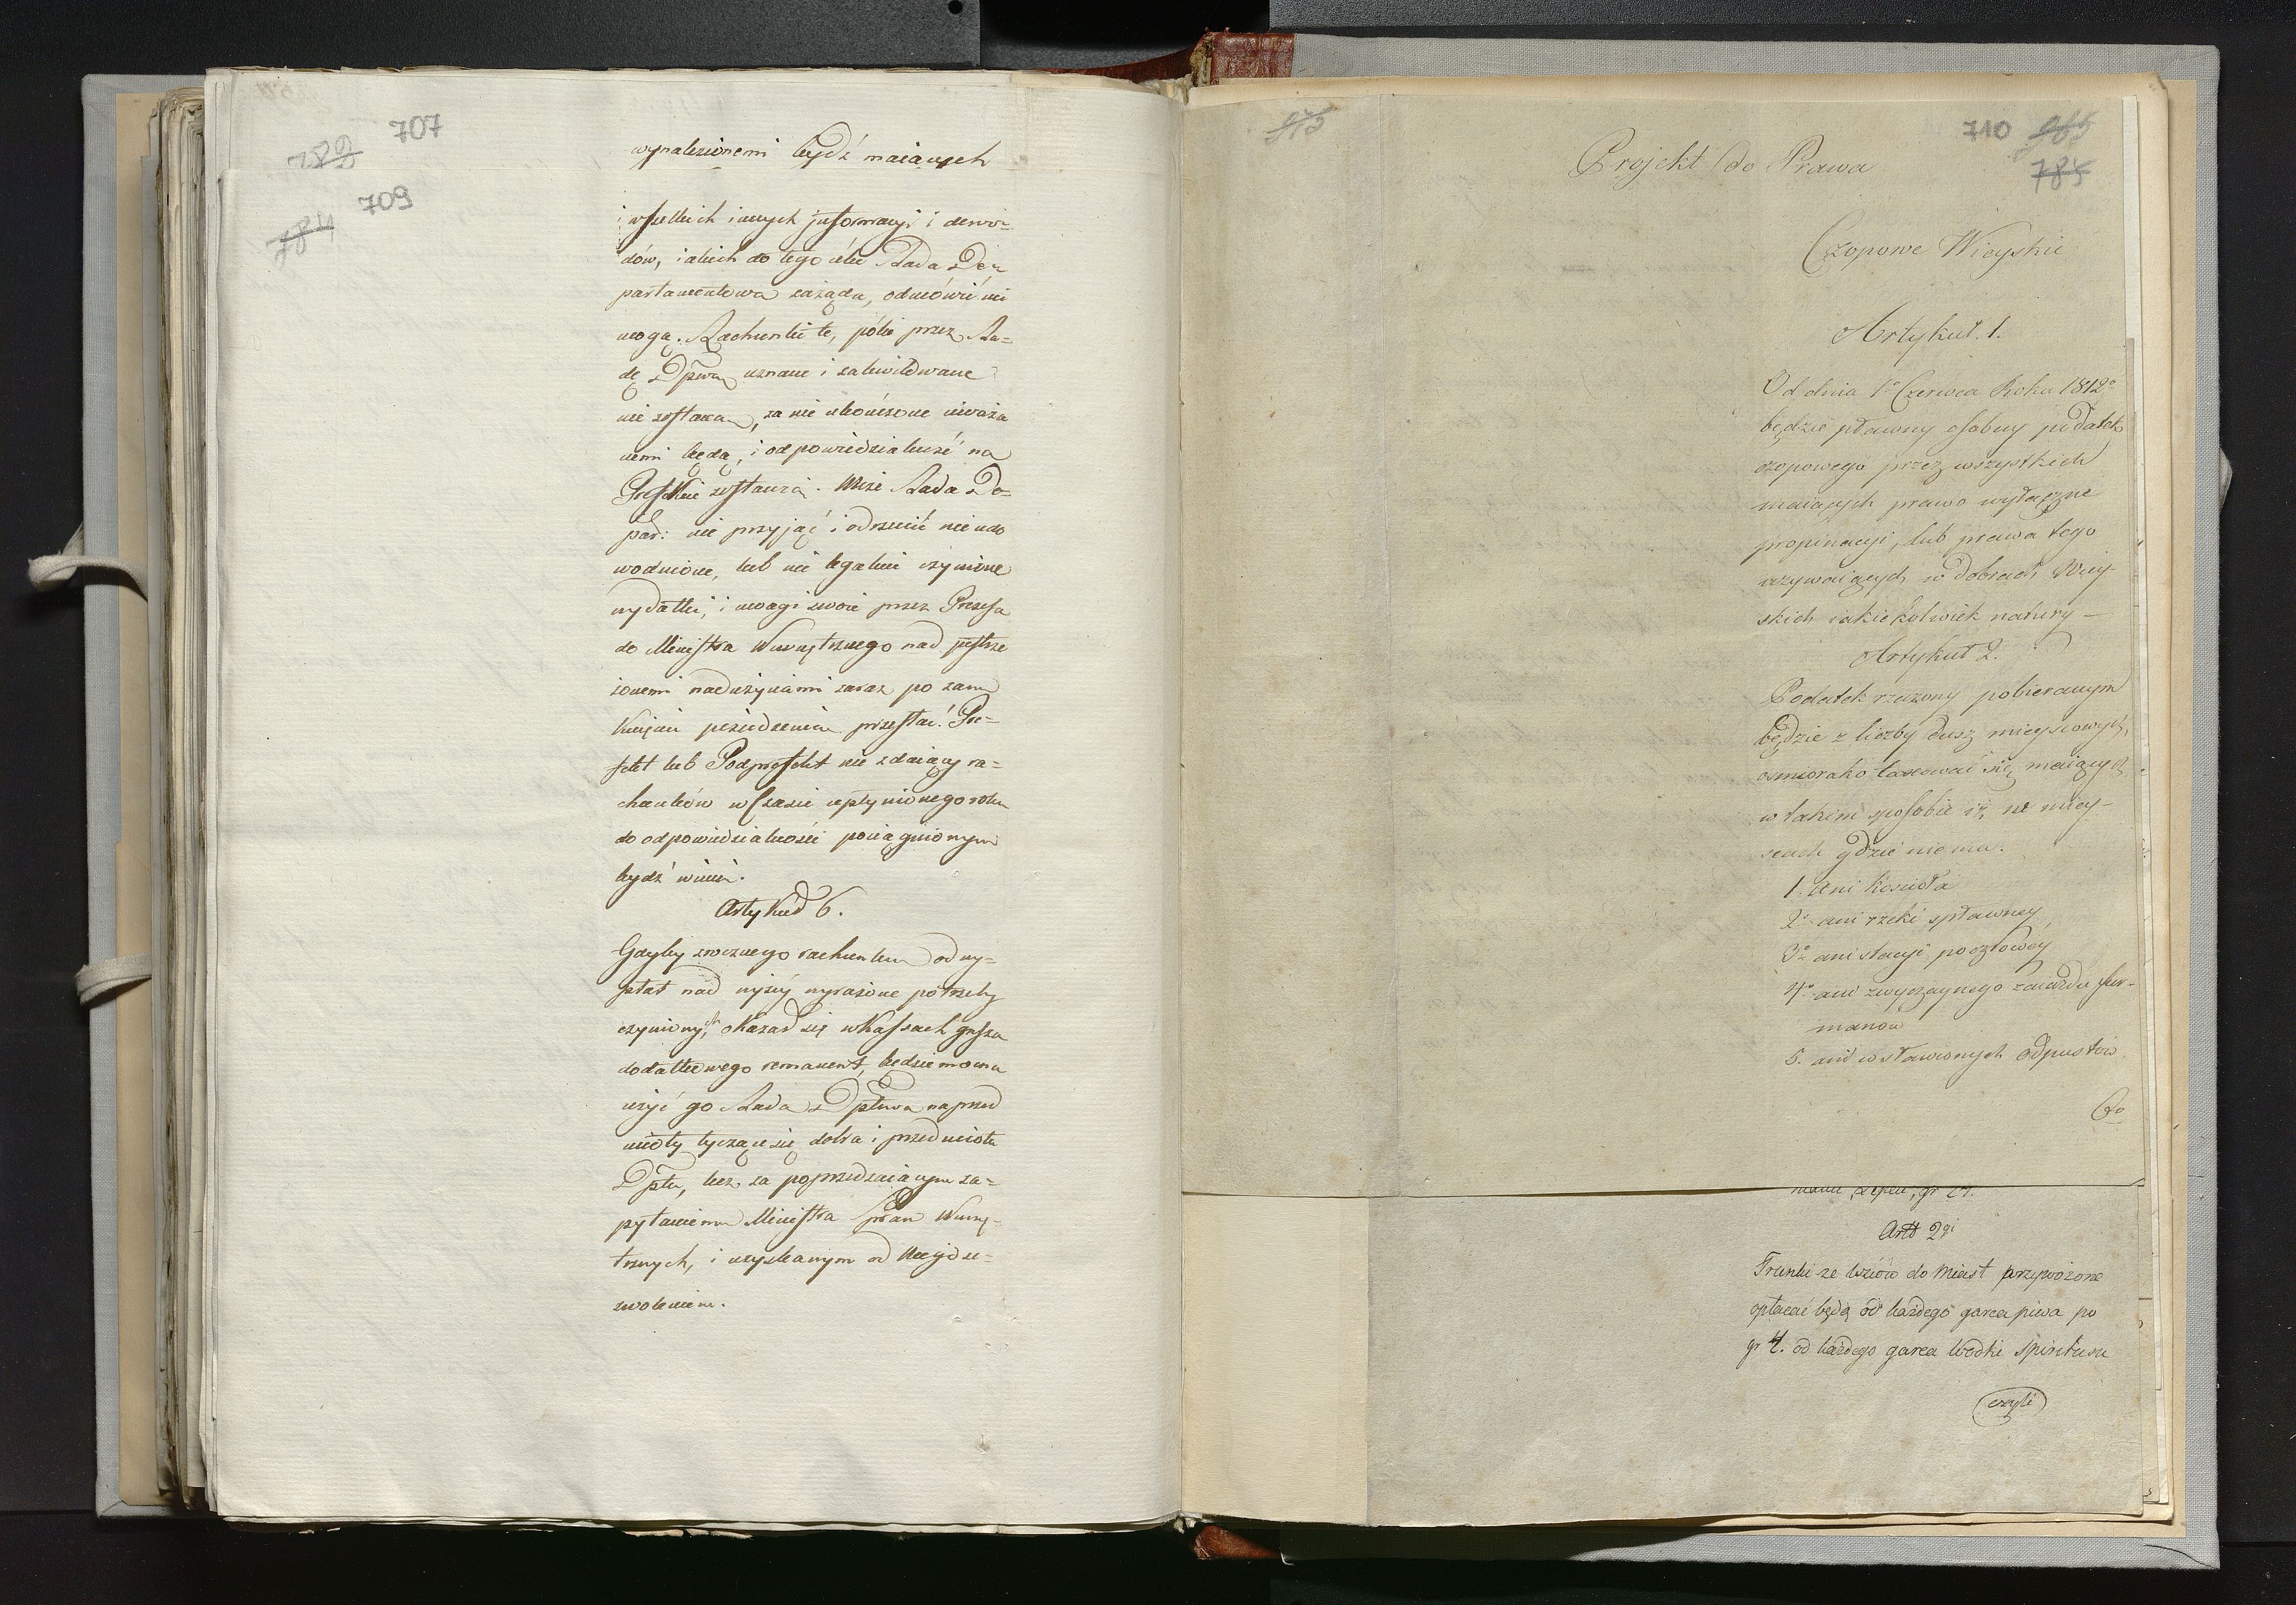 707
782
wynalezionemi bydź maiących
709
784
i wszelkich innych informacyi i dowo=
dów, iakich do tego celu Rada De=
partamentowa zażąda, odmówić nie
mogą. Rachunki te, póki przez Ra=
dę Dptwą uznane i zakwitowane
nie zostaną, za nie ukończone uważa
nemi będą, i odpowiedzialność na
Prefekcie zostawią. Może Rada De=
part: nie przyjąć i odrzucić nieudo
wodnione, lub nie legalnie czynione
wydatki, i uwagi swoie przez Prezesa
do Ministra Wewnętrznego nad postrze
żonemi nadużyciami zaraz po zam
knięciu posiedzenia przesłać. Pre=
fekt lub Podprefekt nie zdaiący ra=
chunków w Czasie upłynionego roku
do odpowiedzialności pociągnionym
bydź winien.
Artykuł 6.
Gdyby z rocznego rachunku od wy=
płat nad wyżéy wyrażone potrzeby
czynionych, okazał się w Kassach grosza
dodatkowego remanent, będzie mogła
użyć go Rada Dptwa na przed
mioty tyczące się dobra i przedmiotu
Dptu, lecz za poprzedzaiącym za=
pytaniem Ministra Spraw Wewnę=
trznych, i uzyskanym od Niego ze=
zwoleniem.
975
710 985
785
Projekt do Prawa
Czopowe Wieyskie
Artykuł. 1.
Od dnia 1º Czerwca Roku 1812º
będzie płacony osobny podatek
czopowego przez wszystkich
maiących prawo wyłączne
propinacyi, lub prawa tego
używaiących w dobrach Wiey-
skich iakieżkolwiek natury –
Artykuł 2.
Podatek rzeczony pobieranym
będzie z liczby dusz mieyscowych,
ośmiorako taxować się maiących
w takim sposobie iż, w miey-
scach gdzie nie ma.
1. ani kościoła
2º ani rzeki spławney
3º ani stacyi pocztowéy
4º ani zwyczaynego zaiazdu fur-
manów
5. ani wsławionych odpustów
Art 2gi
Trunki ze wsiów do Miast przywożone
opłacać będą od każdego garca piwa po
gr 4. od każdego garca Wodki Spiritusu
czyli